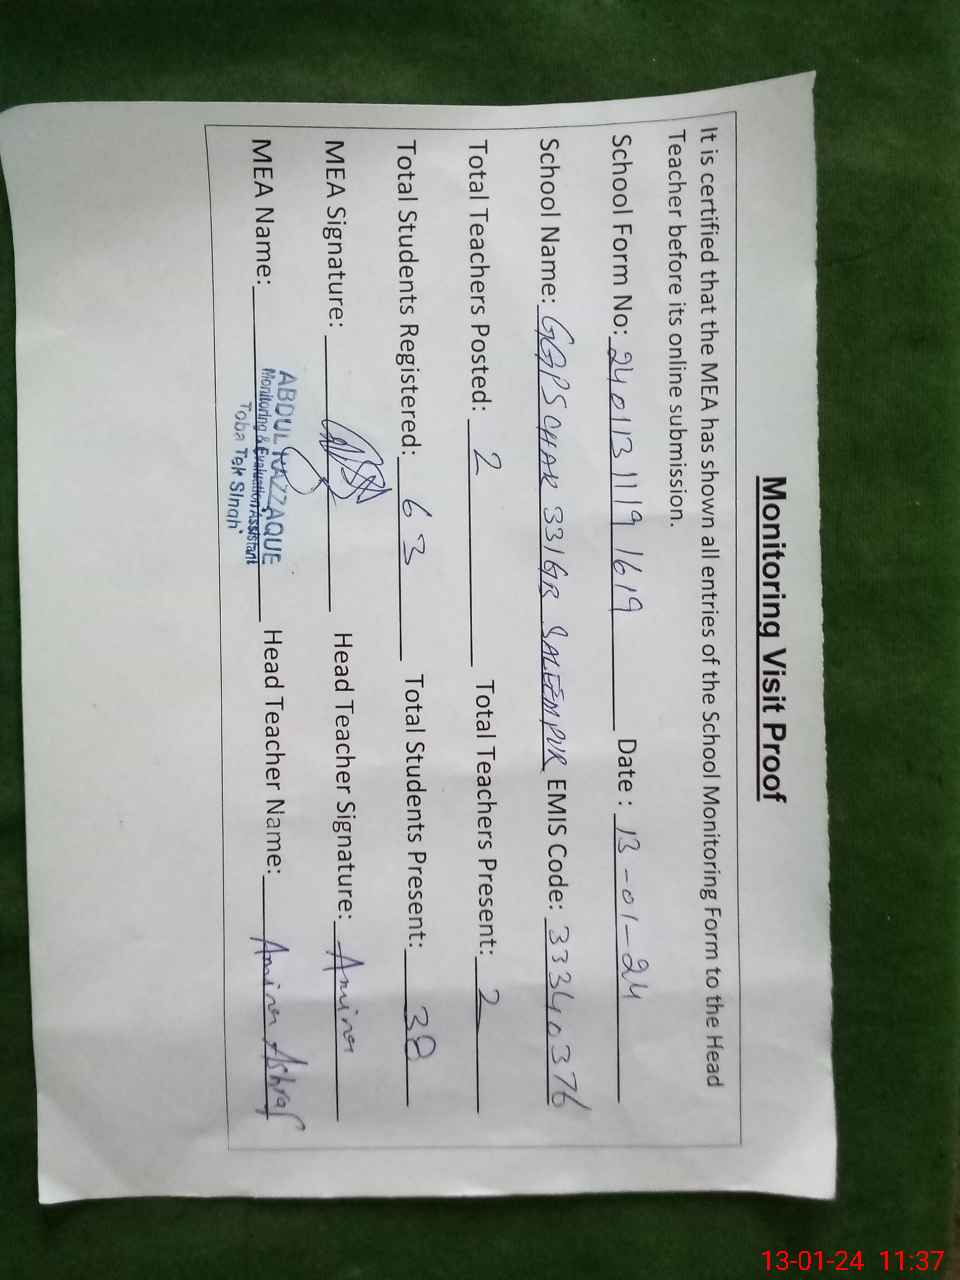 Monitoring Visit Proof
It is certified that the MEA has shown all entries of the School Monitoring Form to the Head
Teacher before its online submission.
School Form No: 24011311191619 Date : 13-01-24
School Name: GGPS CHAK 331GB SALEEMPUR EMIS Code: 33340376
Total Teachers Posted: 2 Total Teachers Present: 2
Total Students Registered: 63 Total Students Present: 38
MEA Signature: Head Teacher Signature: Amina
MEA Name: ABDUL RAZZAQUE Head Teacher Name: Amina Ashraf
Monitoring & Evaluation Assistant
Toba Tek Singh
13-01-24 11:37